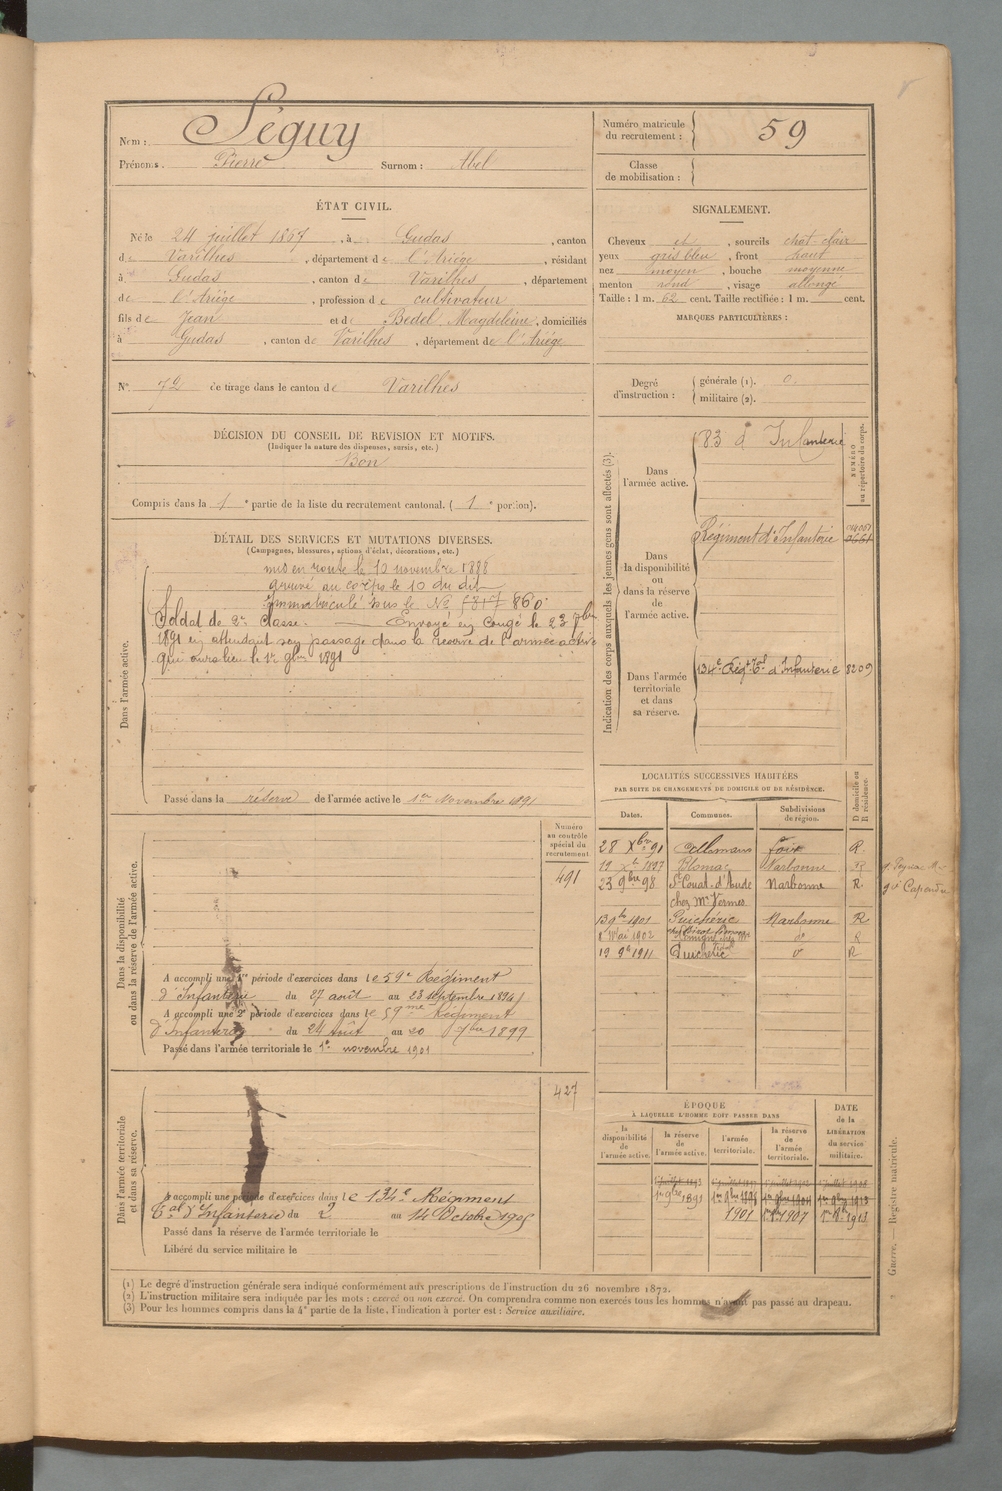 Nom : Séguy
Prénoms : Pierre Surnom : Abel
Numéro matricule du recrutement : 59
Classe de mobilisation :
ÉTAT CIVIL.
Né le 24 juillet 1867, à Gudas, canton
de Varilhes, département de l'Ariège, résidant
à Gudas, canton de Varilhes, département
de l'Ariège, profession de cultivateur
fils de Jean et de Bedel Magdeleine, domiciliés
à Gudas, canton de Varilhes, département de l'Ariége
N° 72 de tirage dans le canton de Varilhes
SIGNALEMENT.
Cheveux et, sourcils chat-clair
yeux gris bleu, front haut
nez moyen, bouche moyenne
menton rond, visage allongé
Taille : 1 m. 62 cent. Taille rectifiée : 1 m. cent.
MARQUES PARTICULIÈRES :
Degré d'instruction : générale (1). 0.
militaire (2).
DÉCISION DU CONSEIL DE REVISION ET MOTIFS.
(Indiquer la nature des dispenses, sursis, etc.)
Bon
Compris dans la 1e partie de la liste du recrutement cantonal. (1e portion).
DÉTAIL DES SERVICES ET MUTATIONS DIVERSES.
(Campagnes, blessures, actions d'éclat, décorations, etc.)
Dans l'armée active.
mis en route le 10 novembre 1888
arrivé au corps le 10 du dit
Immatriculé sous le No 860
Soldat de 2e Classe. Envoyé en Congé le 23 7bre
1891 en attendant son passage dans la réserve de l'armée active
qui aura lieu le 1er 9bre 1891
Passé dans la réserve de l'armée active le 1er Novembre 1891
Indication des corps auxquels les jeunes gens sont affectés (3).
NUMÉRO au répertoire du corps.
Dans l'armée active.
83 d'Infanterie
Dans la disponibilité ou dans la réserve de l'armée active.
Régiment d'Infanterie
Dans l'armée territoriale et dans sa réserve.
134e Régt Tal d'Infanterie 8209
LOCALITÉS SUCCESSIVES HABITÉES
PAR SUITE DE CHANGEMENTS DE DOMICILE OU DE RÉSIDENCE.
Dates. Communes. Subdivisions de région. D domicile ou R résidence.
28 Xbre 91 Foix R.
19 Xbre 1897 Blomac Narbonne R
23 9bre 98 St Couat-d'Aude Narbonne R.
chez Mr Vernes
13 9bre 1901 Puichéric Narbonne R
1 Mai 1902 do R
19 9bre 1911 Puichéric do R
Dans la disponibilité ou dans la réserve de l'armée active.
Numéro au contrôle spécial du recrutement
491
A accompli une 1re période d'exercices dans le 59e Régiment
d'Infanterie du 27 août au 23 septembre 1894
A accompli une 2e période d'exercices dans le 59me Régiment
d'Infanterie du 24 Août au 20 7bre 1899
Passé dans l'armée territoriale le 1er novembre 1901
Dans l'armée territoriale et dans sa réserve.
427
A accompli une période d'exercices dans le 134e Régiment
Tal d'Infanterie du 2 au 14 Octobre 1905
Passé dans la réserve de l'armée territoriale le
Libéré du service militaire le
ÉPOQUE
À LAQUELLE L'HOMME DOIT PASSER DANS
la disponibilité de l'armée active.
la réserve de l'armée active.
l'armée territoriale.
la réserve de l'armée territoriale.
DATE de la LIBÉRATION du service militaire.
1er 9bre 1891 1er 9bre 1898 1er 9bre 1904 1er 9bre 1913
1901 1907 1913
Guerre. — Registre matricule.
(1) Le degré d'instruction générale sera indiqué conformément aux prescriptions de l'instruction du 26 novembre 1872.
(2) L'instruction militaire sera indiquée par les mots : exercé ou non exercé. On comprendra comme non exercés tous les hommes n'ayant pas passé au drapeau.
(3) Pour les hommes compris dans la 4e partie de la liste, l'indication à porter est : Service auxiliaire.